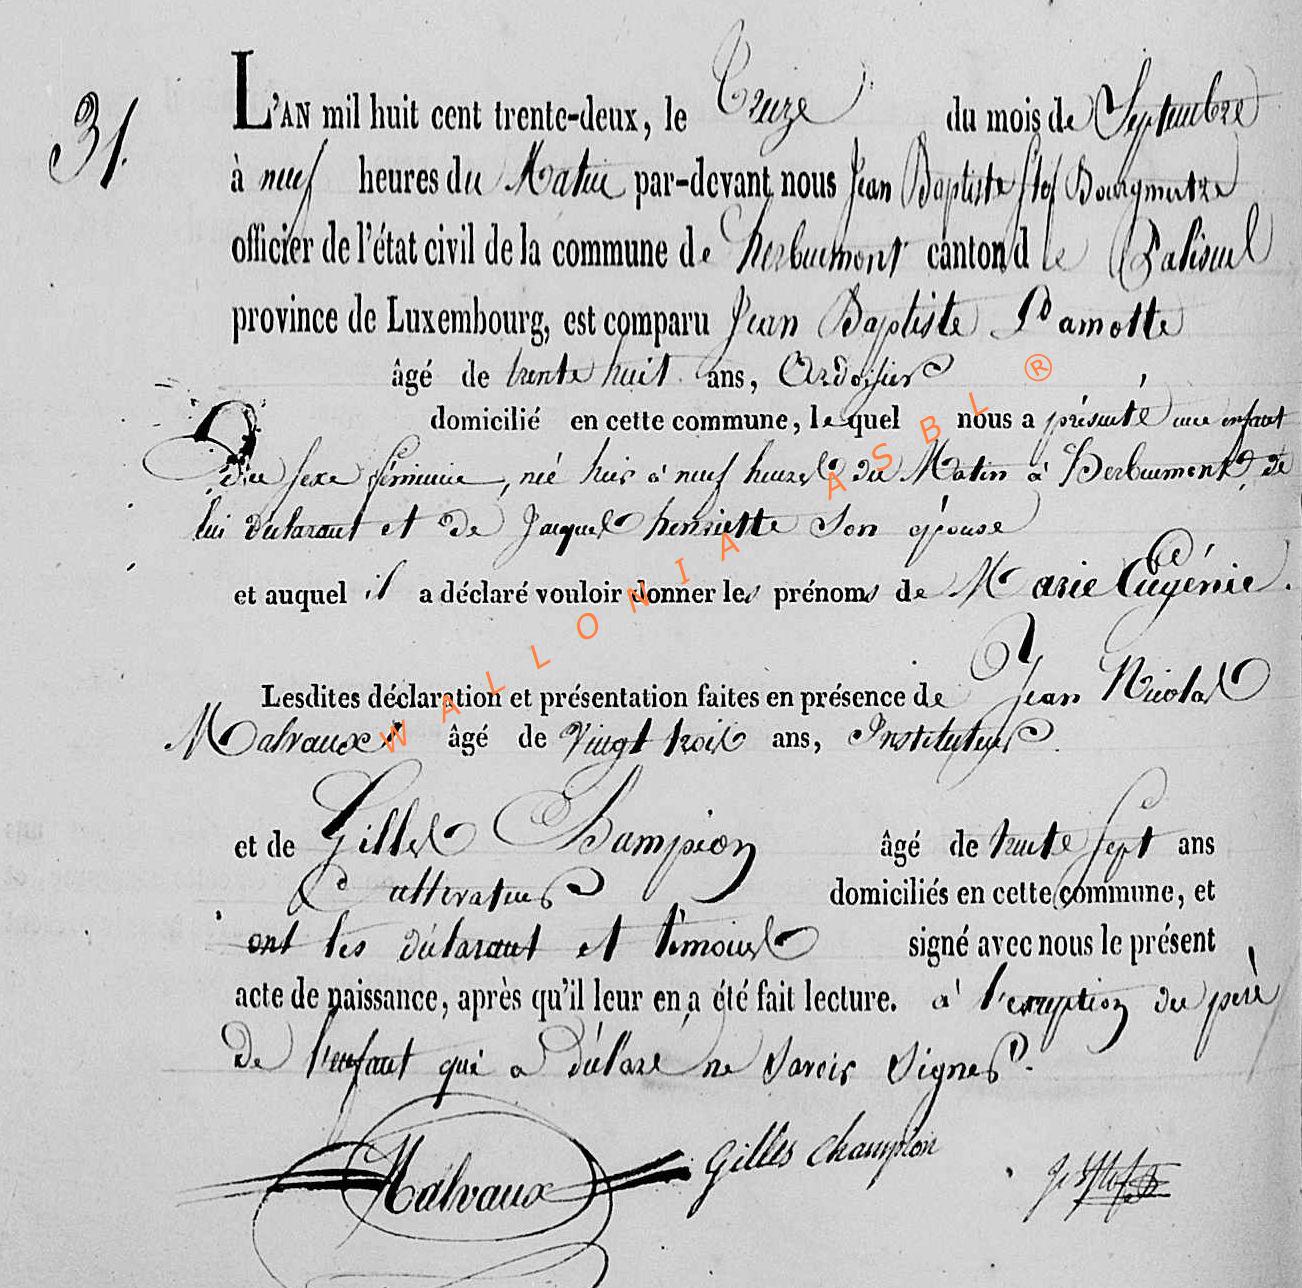 31.
L'AN mil huit cent trente-deux, le Treize du mois de Septembre
à neuf heures du Matin par-devant nous Jean Baptiste Stof Bourgmestre
officier de l'état civil de la commune de herbeumont canton de Paliseul
province de Luxembourg, est comparu Jean Baptiste Damotte
âgé de trente huit ans, Ardoisier
domicilié en cette commune, lequel nous a présenté une enfant
du sexe féminin, né hier à neuf heures du Matin à Herbeumont, de
lui déclarant et de Jacques henriette son épouse
et auquel il a déclaré vouloir donner les prénoms de Marie Eugénie.
Lesdites déclaration et présentation faites en présence de Jean Nicolas
Malvaux âgé de Vingt trois ans, Instituteur.
et de Gilles Champion âgé de trente sept ans
Cultivateur domiciliés en cette commune, et
ont les déclarant et témoins signé avec nous le présent
acte de naissance, après qu'il leur en a été fait lecture. à l'exeption du père
de l'enfant qui a déclaré ne savoir signer.
Malvaux Gilles Champion
WALLONIA ASBL ®